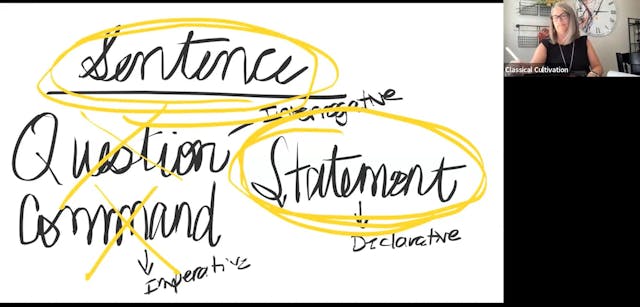 Sentence
Interrogative
Question
Statement
Command
Declarative
Imperative
Classical Cultivation